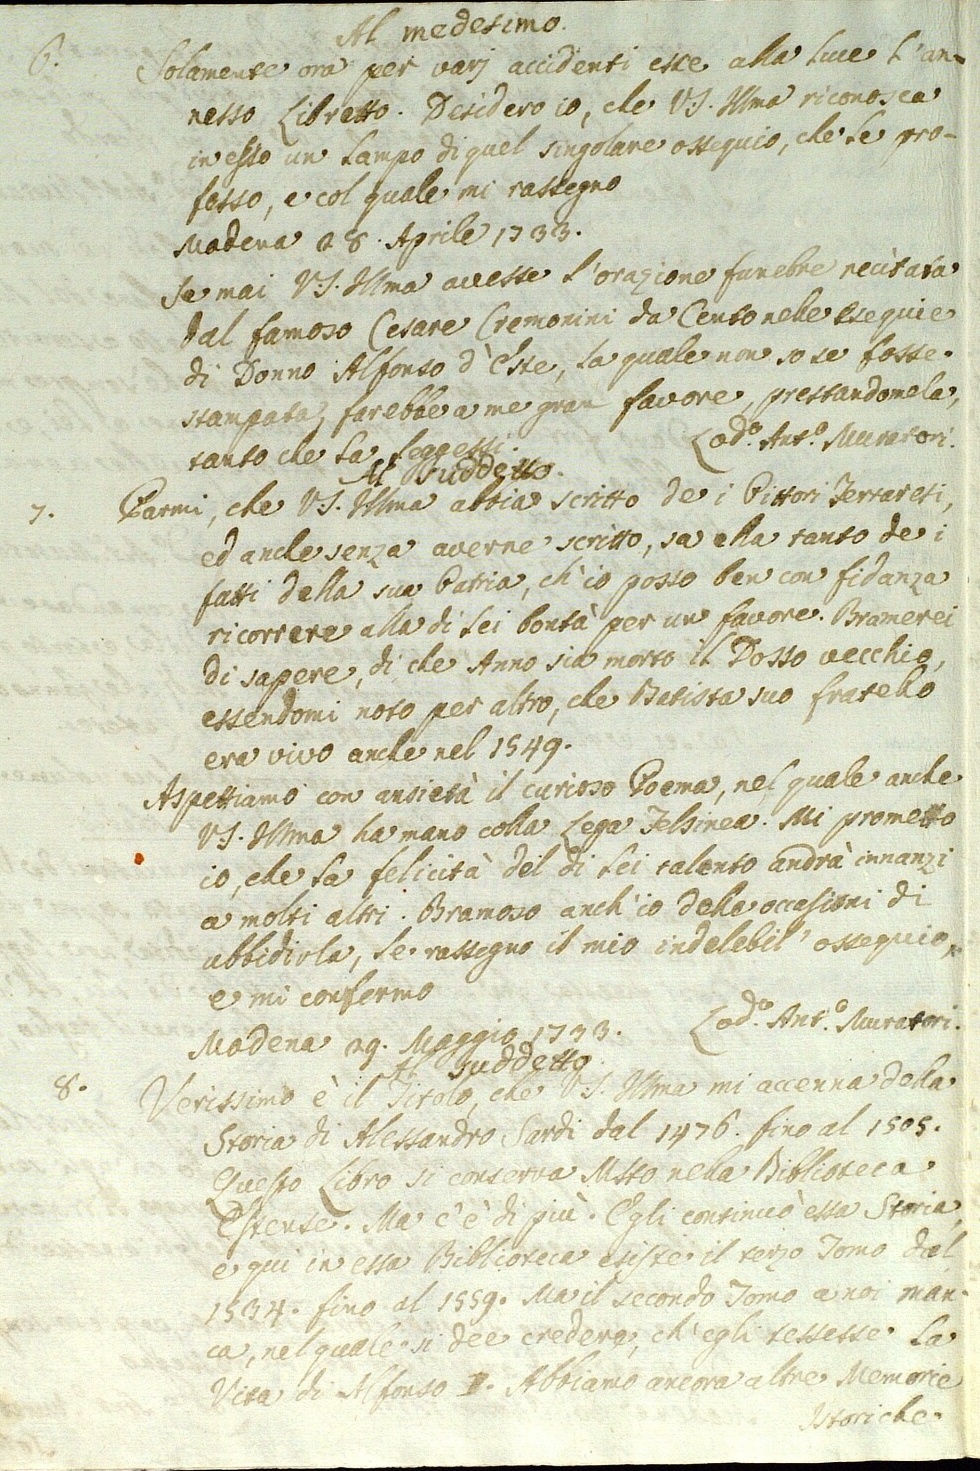 Al medesimo.
6. Solamente ora per varj accidenti esce alla luce l'an-
nesso Libretto. Desidero io, che V.S. Illma riconosca
in esso un lampo di quel singolare ossequio, che le pro-
fesso, e col quale mi rassegno
Modena 28. Aprile 1733.
Se mai V.S. Illma avesse l'orazione funebre recitata
dal famoso Cesare Cremonini da Cento nelle esequie
di Donno Alfonso d'Este, la quale non so se fosse
stampata, farebbe a me gran favore, prestandomela,
tanto che la leggessi.
Lod.o Ant.o Muratori.
Al suddetto.
7. Parmi, che V.S. Illma abbia scritto de i Pittori Ferraresi,
ed anche senza averne scritto, sa ella tanto de i
fatti della sua Patria, ch'io posso ben con fidanza
ricorrere alla di lei bontà per un favore. Bramerei
di sapere, di che Anno sia morto il Dosso vecchio,
essendomi noto per altro, che Batista suo fratello
era vivo anche nel 1549.
Aspettiamo con ansietà il curioso Poema, nel quale anche
V.S. Illma ha mano colla Lega Felsinea. Mi prometto
io, che la felicità del di lei talento andrà innanzi
a molti altri. Bramoso anch'io delle occasioni di
ubbidirla, le rassegno il mio indelebil' ossequio,
e mi confermo
Lod.o Ant.o Muratori.
Modena 29. Maggio 1733.
Al suddetto
8. Verissimo è il Titolo, che V.S. Illma mi accenna della
Storia di Alessandro Sardi dal 1476. fino al 1505.
Questo Libro si conserva Msto nella Biblioteca
Estense. Ma c'è di più. Egli continuò essa Storia,
e qui in essa Biblioteca esiste il terzo Tomo dal
1534. fino al 1559. Ma il secondo Tomo a noi man-
ca, nel quale si dee credere, ch'egli tessesse la
Vita di Alfonso I. Abbiamo ancora altre Memorie
Istoriche